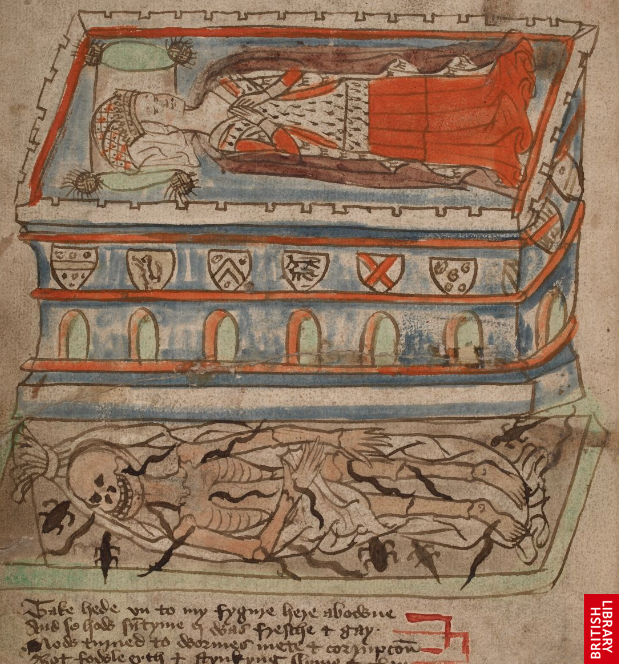 Take hede vn to my fygure here abowne
And se how sūtyme I was fresche & gay
Now turned to wormes mete & corrupcōn
Bot fowle erth & stynkyng slyme &
BRITISH
LIBRARY